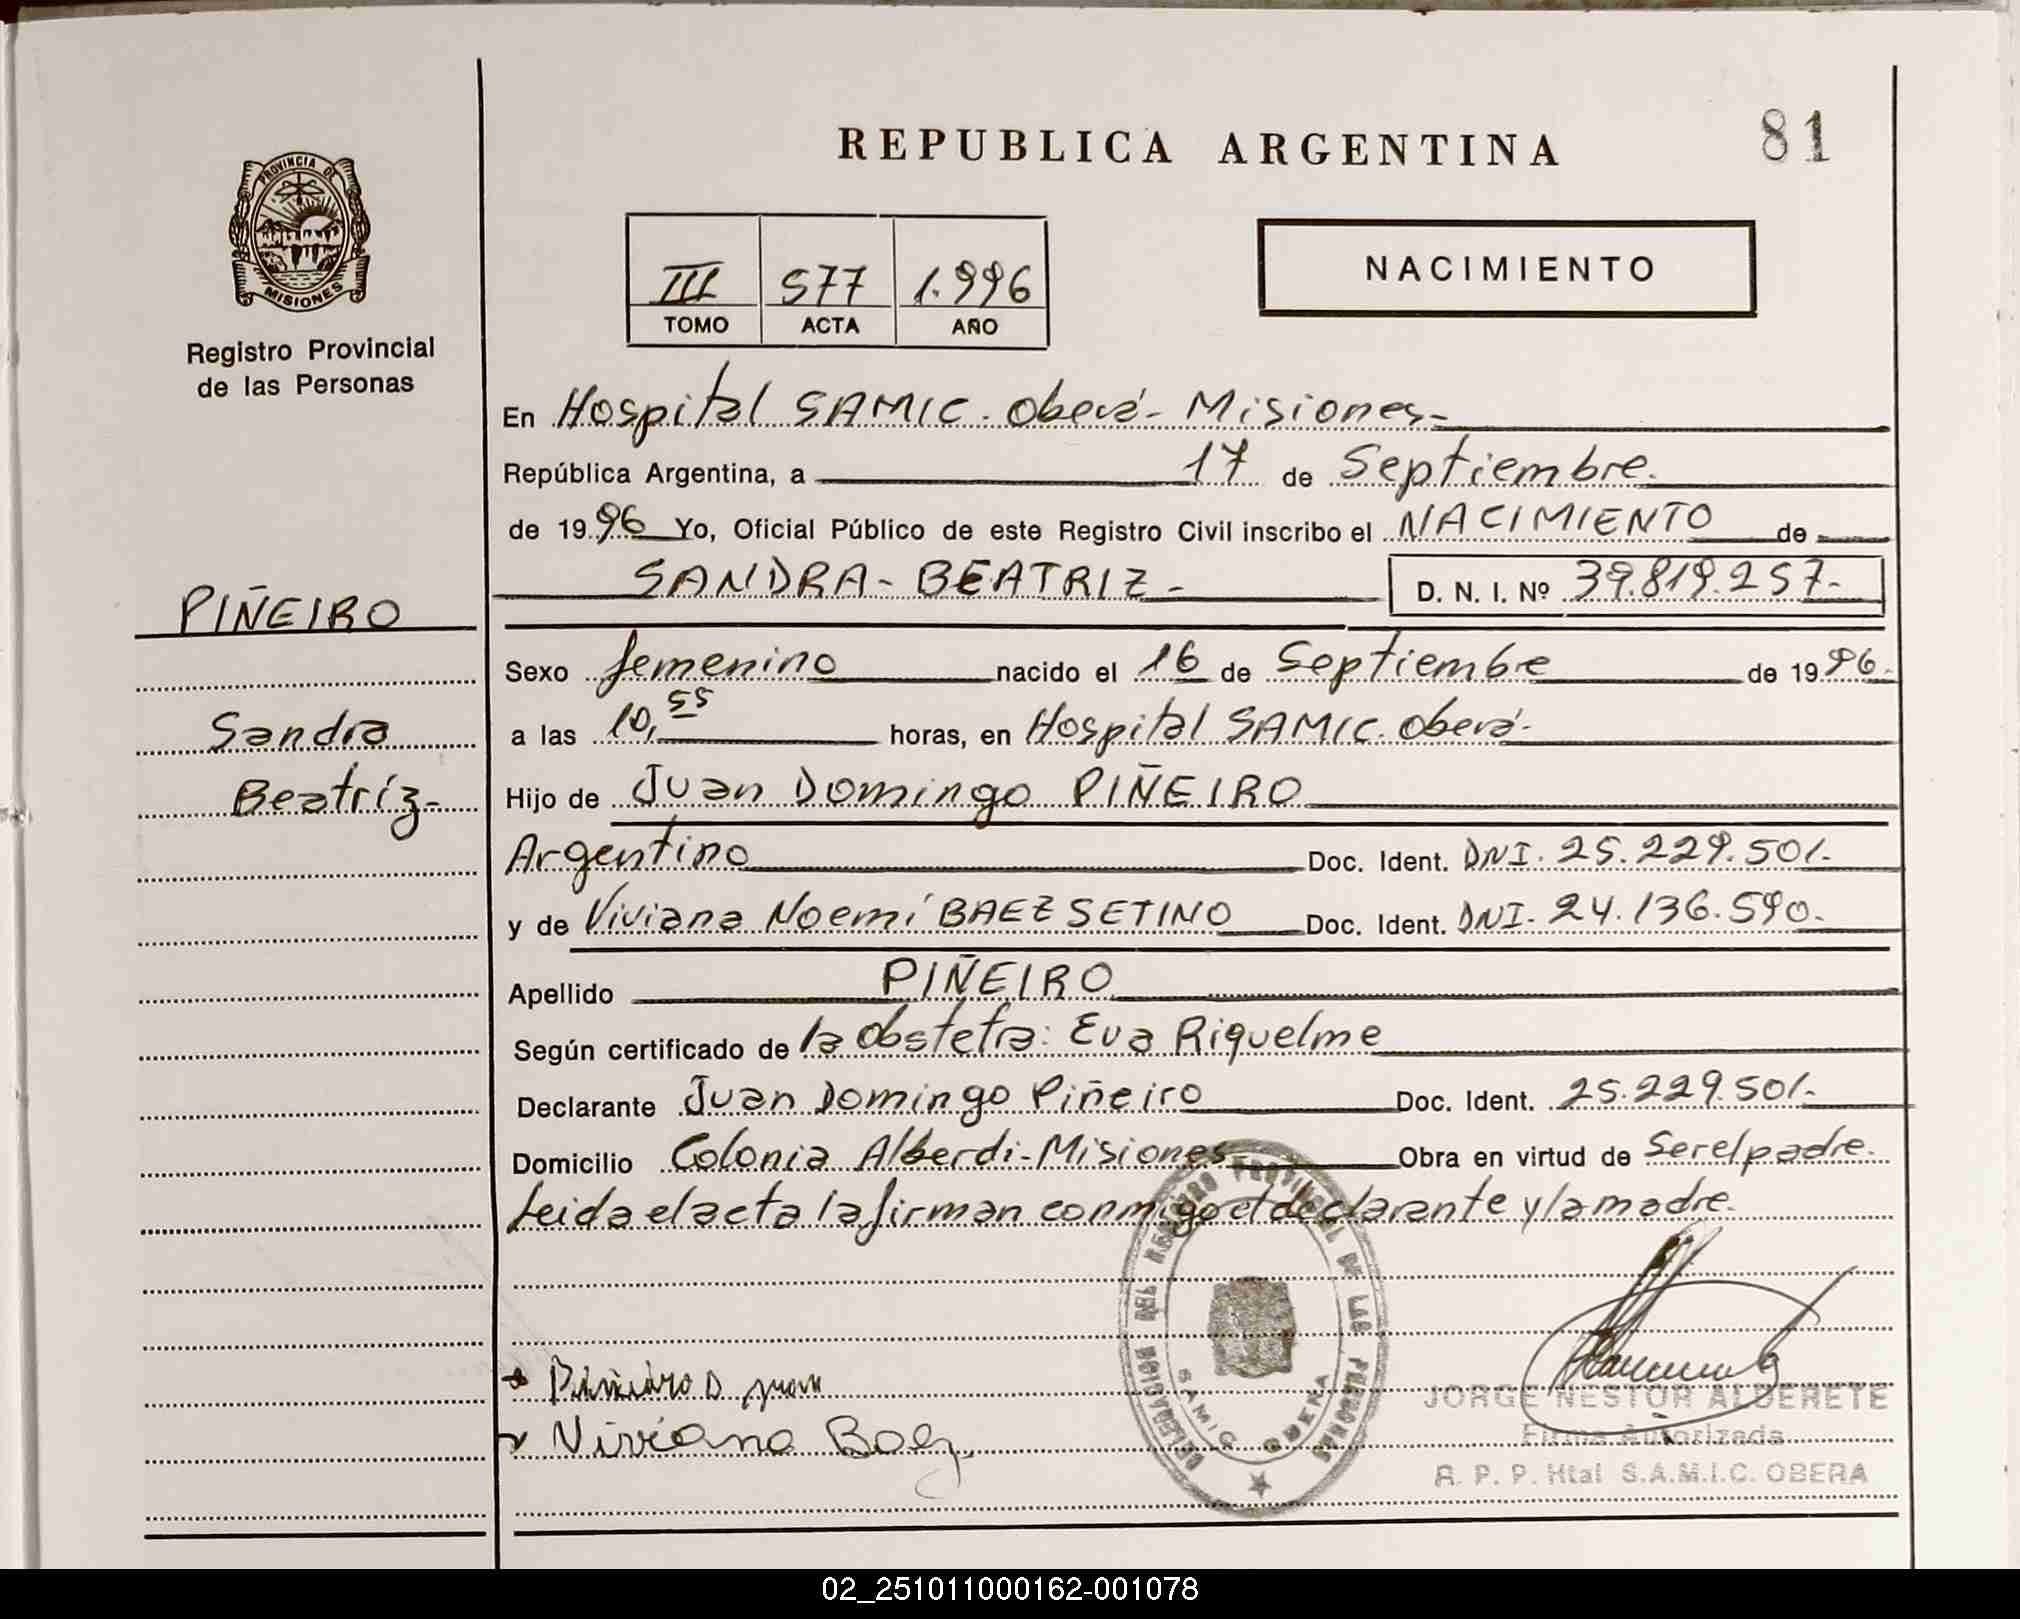 REPUBLICA ARGENTINA
81
PROVINCIA DE
MISIONES
Registro Provincial
de las Personas
III 577 1.996
TOMO ACTA AÑO
NACIMIENTO
En Hospital SAMIC. Oberá- Misiones-
República Argentina, a 17 de Septiembre.
de 19 96 Yo, Oficial Público de este Registro Civil inscribo el NACIMIENTO de
SANDRA - BEATRIZ - D. N. I. Nº 39.819.257-
PIÑEIRO
Sandra
Beatriz-
Sexo femenino nacido el 16 de Septiembre de 19 96.
a las 10,55 horas, en Hospital SAMIC. Oberá-
Hijo de Juan Domingo PIÑEIRO
Argentino Doc. Ident. DNI. 25.229.501.-
y de Viviana Noemí BAEZ SETINO Doc. Ident. DNI- 24.136.590.-
Apellido PIÑEIRO
Según certificado de la obstetra: Eva Riquelme
Declarante Juan Domingo Piñeiro Doc. Ident. 25.229.501.-
Domicilio Colonia Alberdi- Misiones Obra en virtud de Ser el padre.
Leida el acta la firman conmigo el declarante y la madre.
Piñeiro D juan
Viviana Baez
DELEGACION DEL REGISTRO PROVINCIAL DE LAS PERSONAS
SAMIC OBERA
JORGE NESTOR ALDERETE
Firma Autorizada
R. P. P. Htal S.A.M.I.C. OBERA
02_251011000162-001078